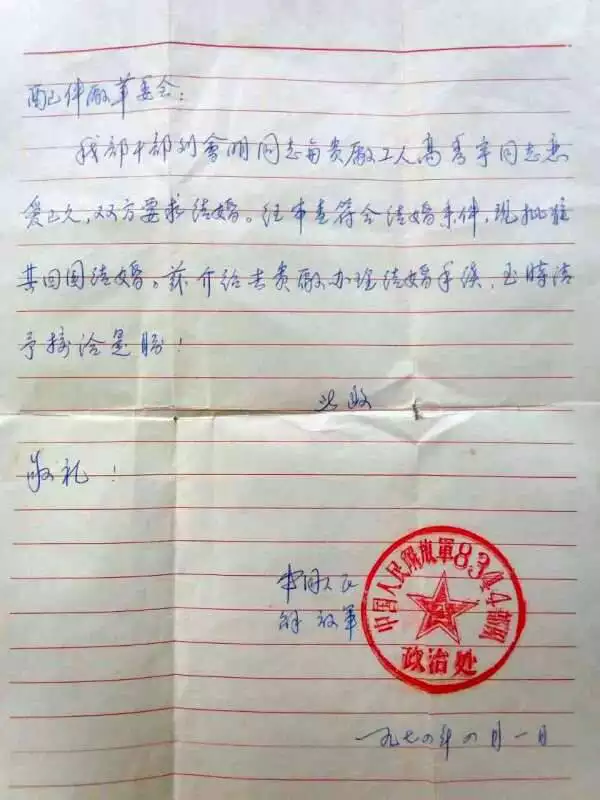 配件厰革委会：
我部干部刘会明同志与贵厰工人高秀宇同志恋
爱已久，双方要求结婚。经审查符合结婚条件，现批准
其回图结婚。兹介绍去贵厰办理结婚手续，至时请
予接洽是盼！
此致
敬礼！
中国人民
解放军
中国人民解放軍8344部队
政治处
一九七四年四月一日